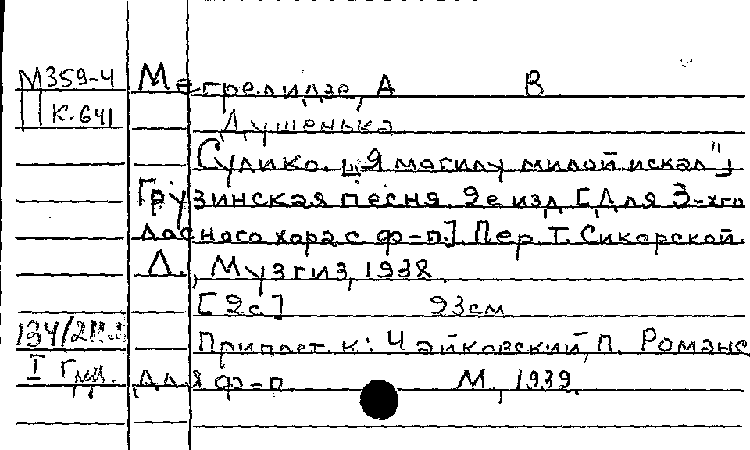 М359-4 Мегрелидзе, А В
К.641 Душенька
Сулико. „Я магилу милой искал"
Грузинская песня. 2е изд [Для 3-хго
лосного хора с ф-п.] Пер. Т. Сикорской.
Л., Музгиз, 1938.
[2с] 23см
Приплет. к: Чайковский, П. Романс
I для ф-п. М., 1939.